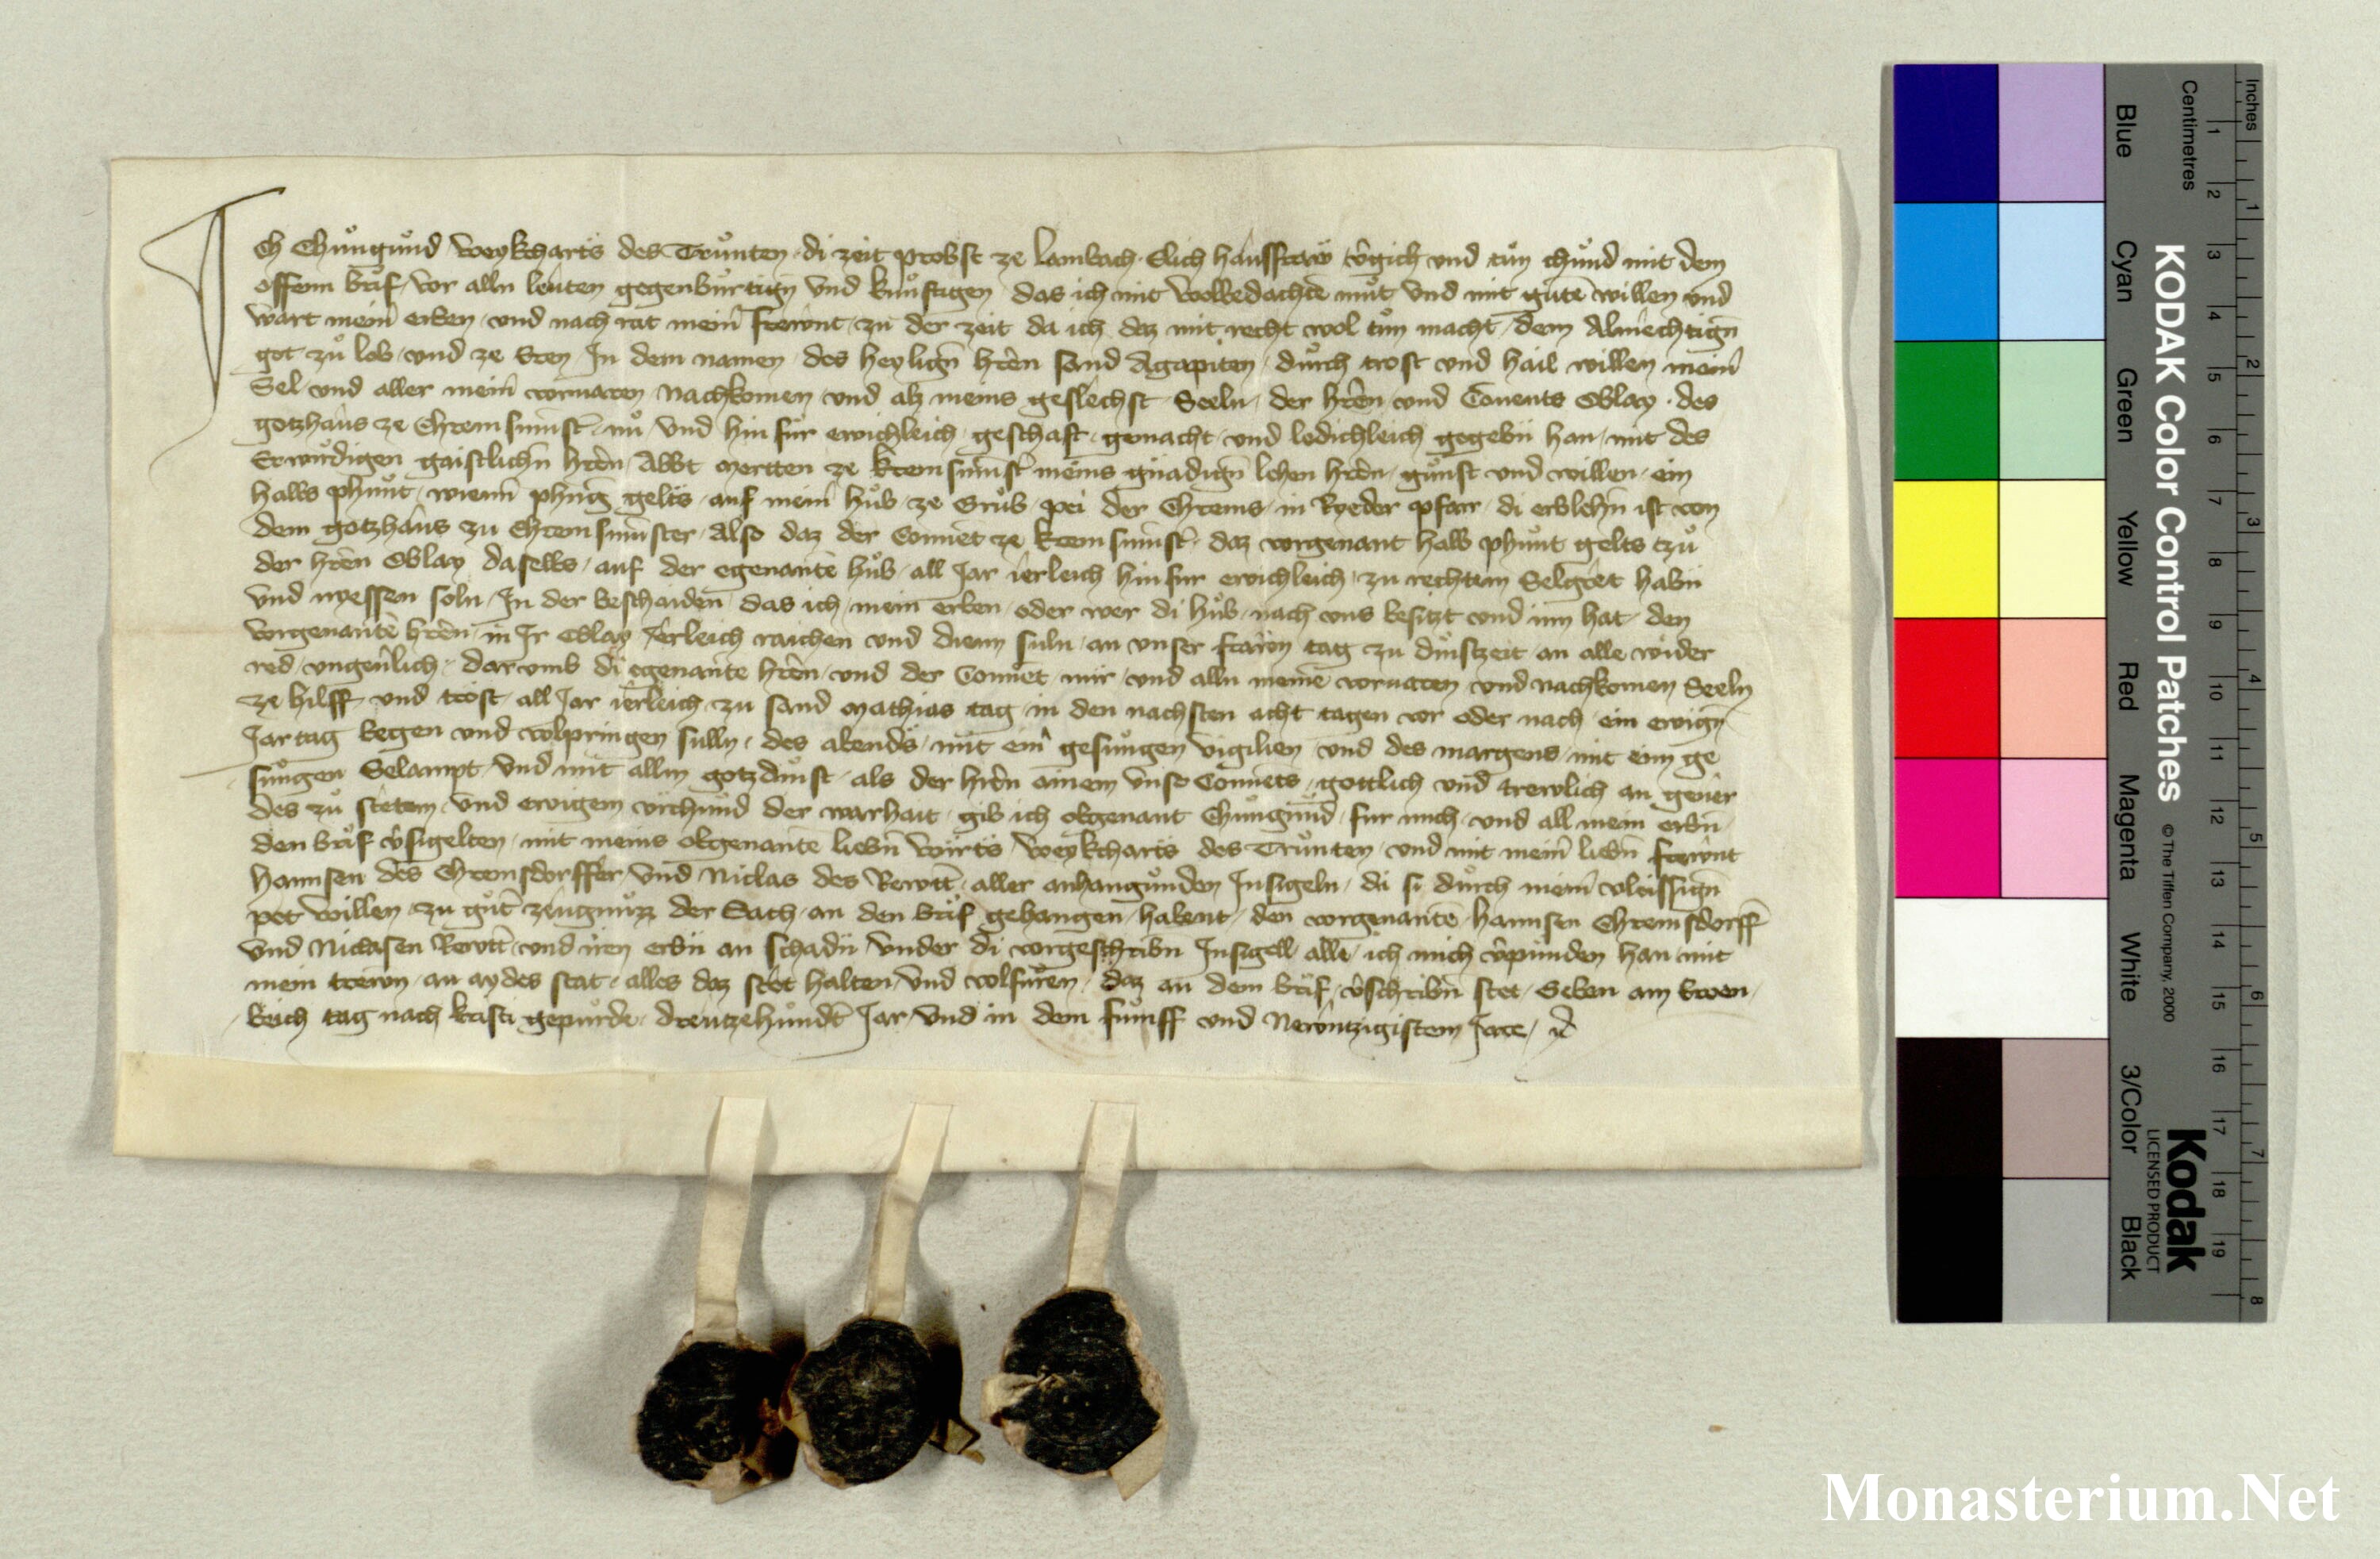 Ich Chůngůnd Weykcharts des Trůnten di zeit probst ze Lambach Elich hausfraw v̂gich und tůn chůnd mit dem
offenn brif vor alln leuten gegenbůrtigen und kůnftigen das ich mit wolbedachtē můt und mit gůtē willen und
wart mein̂ erben und nach rat mein̂ frewnt zu der zeit da ich daz mit recht wol tůn macht dem Almechtign̄
got zů lob und ze Eren In dem namen des heylign̄ hren̂ sand Agapiten durch trost und hail willen mein̂
Sel und aller mein̂ voruaren Nachkomen und alz meins geslechst Seeln der hren̂ und Conents Oblay des
gotzhaus ze Chremsmūnst̂ nů und hin fůr ewichleich geschaft gemacht und ledichleich gegebn̄ han mit des
Erwirdigen gaistlichn̄ hren̂ Abbt Mertten ze Kremsmūnst̂ meins gnadign̄ lehen hren̂ gůnst und willen ein
halbs phůnt wienn̂ phn̄ig gelts auf mein̂ hůb ze Grůb pei der Chrems in Ryeder pfarr di erblehn̄ ist von
dem gotzhaus zu Chremsmūnster Also daz der Conuet ze Kremsmūnst̂ daz vorgenant halb phůnt gelts tzů
der hren̂ Oblay daselbs auf der egenantē hůb all Jar ierleich hinfur ewichleich zu rechtem Selgret habn̄
und nyessen soln In der beschaiden̄ das ich mein erben oder wer di hůb nach vns besitzt und inn hat den
vorgenantē hren̂ in Ir Oblay Jerleich raichen und dienn suln an vnser frawn tag zu dinstzeit an alle wider
red vngeuerlich darvmb di egenantē hren̂ und der Conuet mir und alln meinē voruaren und nachkomen Seeln
ze hilff und trost all Jar ierleich zu sand Mathias tag in den nachsten acht tagen vor oder nach ein ewign̄
Jartag begen und volpringen sulln des abends mit ein̂ gesungen vigilien und des margens mit eim ge
sůngen Selampt und mit allm gotzdinst als der hren̂ ainem vnse Conuets gottlich und trewlich an geuer
des zů stetem und ewigem vrchůnd der warhait gib ich obgenant Chůngůnd fur mich und all mein erbn̄
den brif v̂sigelten mit meins obgenantē liebn̄ Wirts Weykcharts des Trůnten und mit mein̂ liebn̄ frewnt
Hannsen des Chremsdorffer und Niclas des Rewtt̂ aller anhangůnden Insigeln di si durch mein̂ vleissign̄
pet willen zu gůt̂ zeugnůzz der Sach an den brif gehangen habent den vorgenantē Hannsen Chremsdorff̂
und Niclasen Rewtt̂ und iren erbn̄ an schadn̄ vnder di vorgeschribn Insigell allē ich mich v̂punden han mit
mein trewn an aydes stat alles daz stet halten und volfůren daz an dem brif v̂schribn̄ stet Geben am Erwen
Reich tag nach kristi gepůrde drewtzehůndt̂ Jar und in dem fůmff und Newntzigistem Jare
KODAK Color Control Patches © The Tiffen Company, 2000
Kodak
LICENSED PRODUCT
Blue Cyan Green Yellow Red Magenta White 3/Color Black
Centimetres 1 2 3 4 5 6 7 8 9 10 11 12 13 14 15 16 17 18 19
Inches 1 2 3 4 5 6 7 8
Monasterium.Net